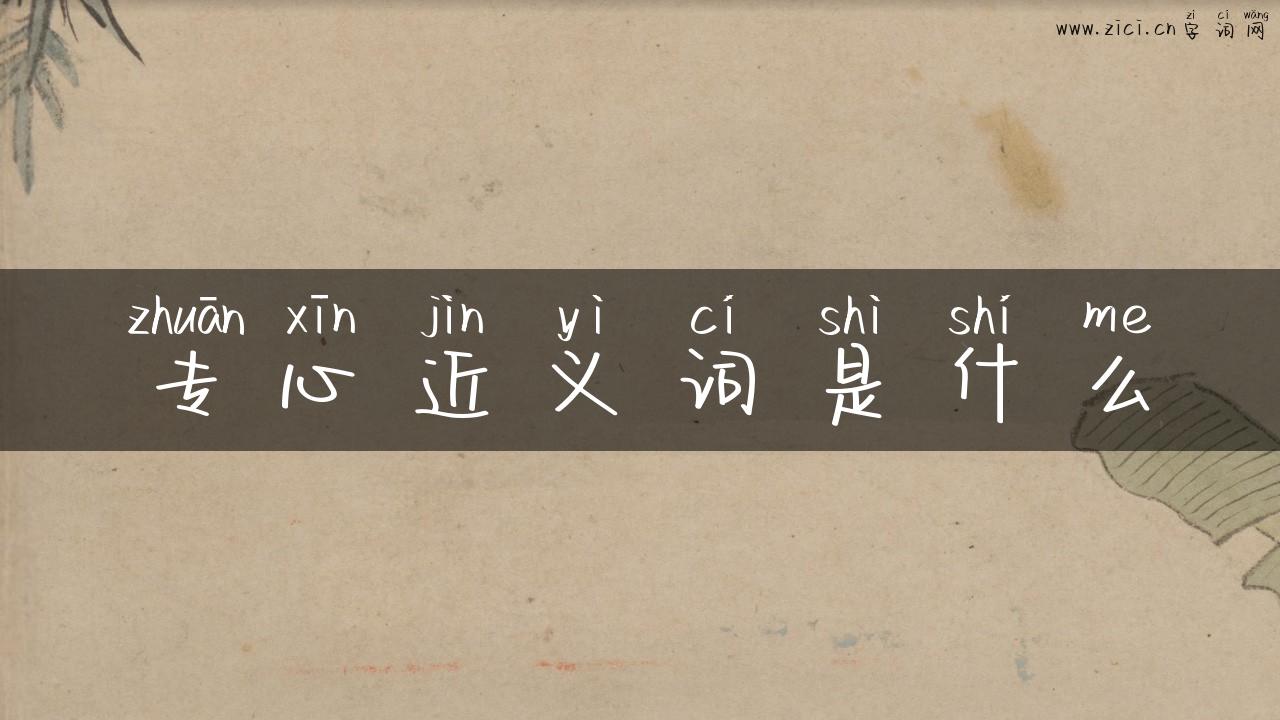 zì cí wǎng
www.zici.cn 字词网
zhuān xīn jìn yì cí shì shí me
专心近义词是什么